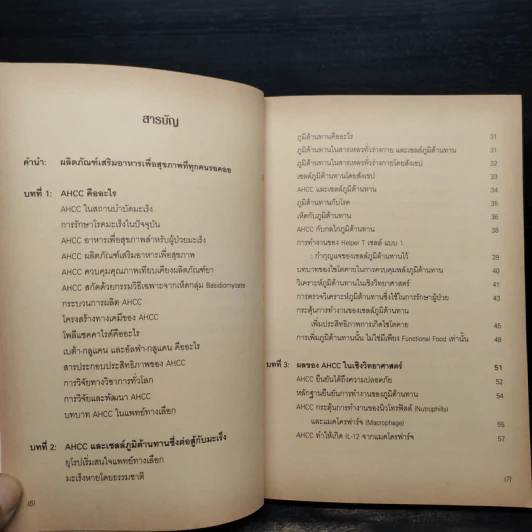 สารบัญ
คำนำ: ผลิตภัณฑ์เสริมอาหารเพื่อสุขภาพที่ทุกคนรอคอย
บทที่ 1: AHCC คืออะไร
AHCC ในสถานบำบัดมะเร็ง
การรักษาโรคมะเร็งในปัจจุบัน
AHCC อาหารเพื่อสุขภาพสำหรับผู้ป่วยมะเร็ง
AHCC ผลิตภัณฑ์เสริมอาหารเพื่อสุขภาพ
AHCC ควบคุมคุณภาพเทียบเคียงผลิตภัณฑ์ยา
AHCC สกัดด้วยกรรมวิธีเฉพาะจากเห็ดกลุ่ม Basidiomycete
กระบวนการผลิต AHCC
โครงสร้างทางเคมีของ AHCC
โพลีแซคคาไรด์คืออะไร
เบต้า-กลูแคน และอัลฟา-กลูแคน คืออะไร
สารประกอบประสิทธิภาพของ AHCC
การวิจัยทางวิชาการทั่วโลก
การวิจัยและพัฒนา AHCC
บทบาท AHCC ในแพทย์ทางเลือก
บทที่ 2: AHCC และเซลล์ภูมิต้านทานซึ่งต่อสู้กับมะเร็ง
ยุโรปเริ่มสนใจแพทย์ทางเลือก
มะเร็งหายโดยธรรมชาติ
(6)
ภูมิต้านทานคืออะไร 31
ภูมิต้านทานในสารเหลวทั่วร่างกาย และเซลล์ภูมิต้านทาน 31
ภูมิต้านทานในสารเหลวทั่วร่างกายโดยสังเขป 32
เซลล์ภูมิต้านทานโดยสังเขป 33
AHCC และเซลล์ภูมิต้านทาน 34
ภูมิต้านทานกับโรค 35
เห็ดกับภูมิต้านทาน 36
AHCC กับกลไกภูมิต้านทาน 38
การทำงานของ Helper T เซลล์ แบบ 1
: กำกุญแจของเซลล์ภูมิต้านทานไว้ 39
บทบาทของไซโตคายในการควบคุมพลังภูมิต้านทาน 40
วิเคราะห์ภูมิต้านทานในเชิงวิทยาศาสตร์ 41
การตรวจวิเคราะห์ภูมิต้านทานซึ่งใช้ในการรักษาผู้ป่วย 43
กระตุ้นการทำงานของเซลล์ภูมิต้านทาน
เพิ่มประสิทธิภาพการเกิดไซโตคาย 45
การเพิ่มภูมิต้านทานนั้น ไม่ใช่มีเพียง Functional Food เท่านั้น 48
บทที่ 3: ผลของ AHCC ในเชิงวิทยาศาสตร์ 51
AHCC ยืนยันได้ถึงความปลอดภัย 52
หลักฐานยืนยันการทำงานของภูมิต้านทาน 54
AHCC กระตุ้นการทำงานของนิวโทรฟิลล์ (Nutrophills)
และแมคโครฟาร์จ (Macrophage) 55
AHCC ทำให้เกิด IL-12 จากแมคโครฟาร์จ 57
(7)